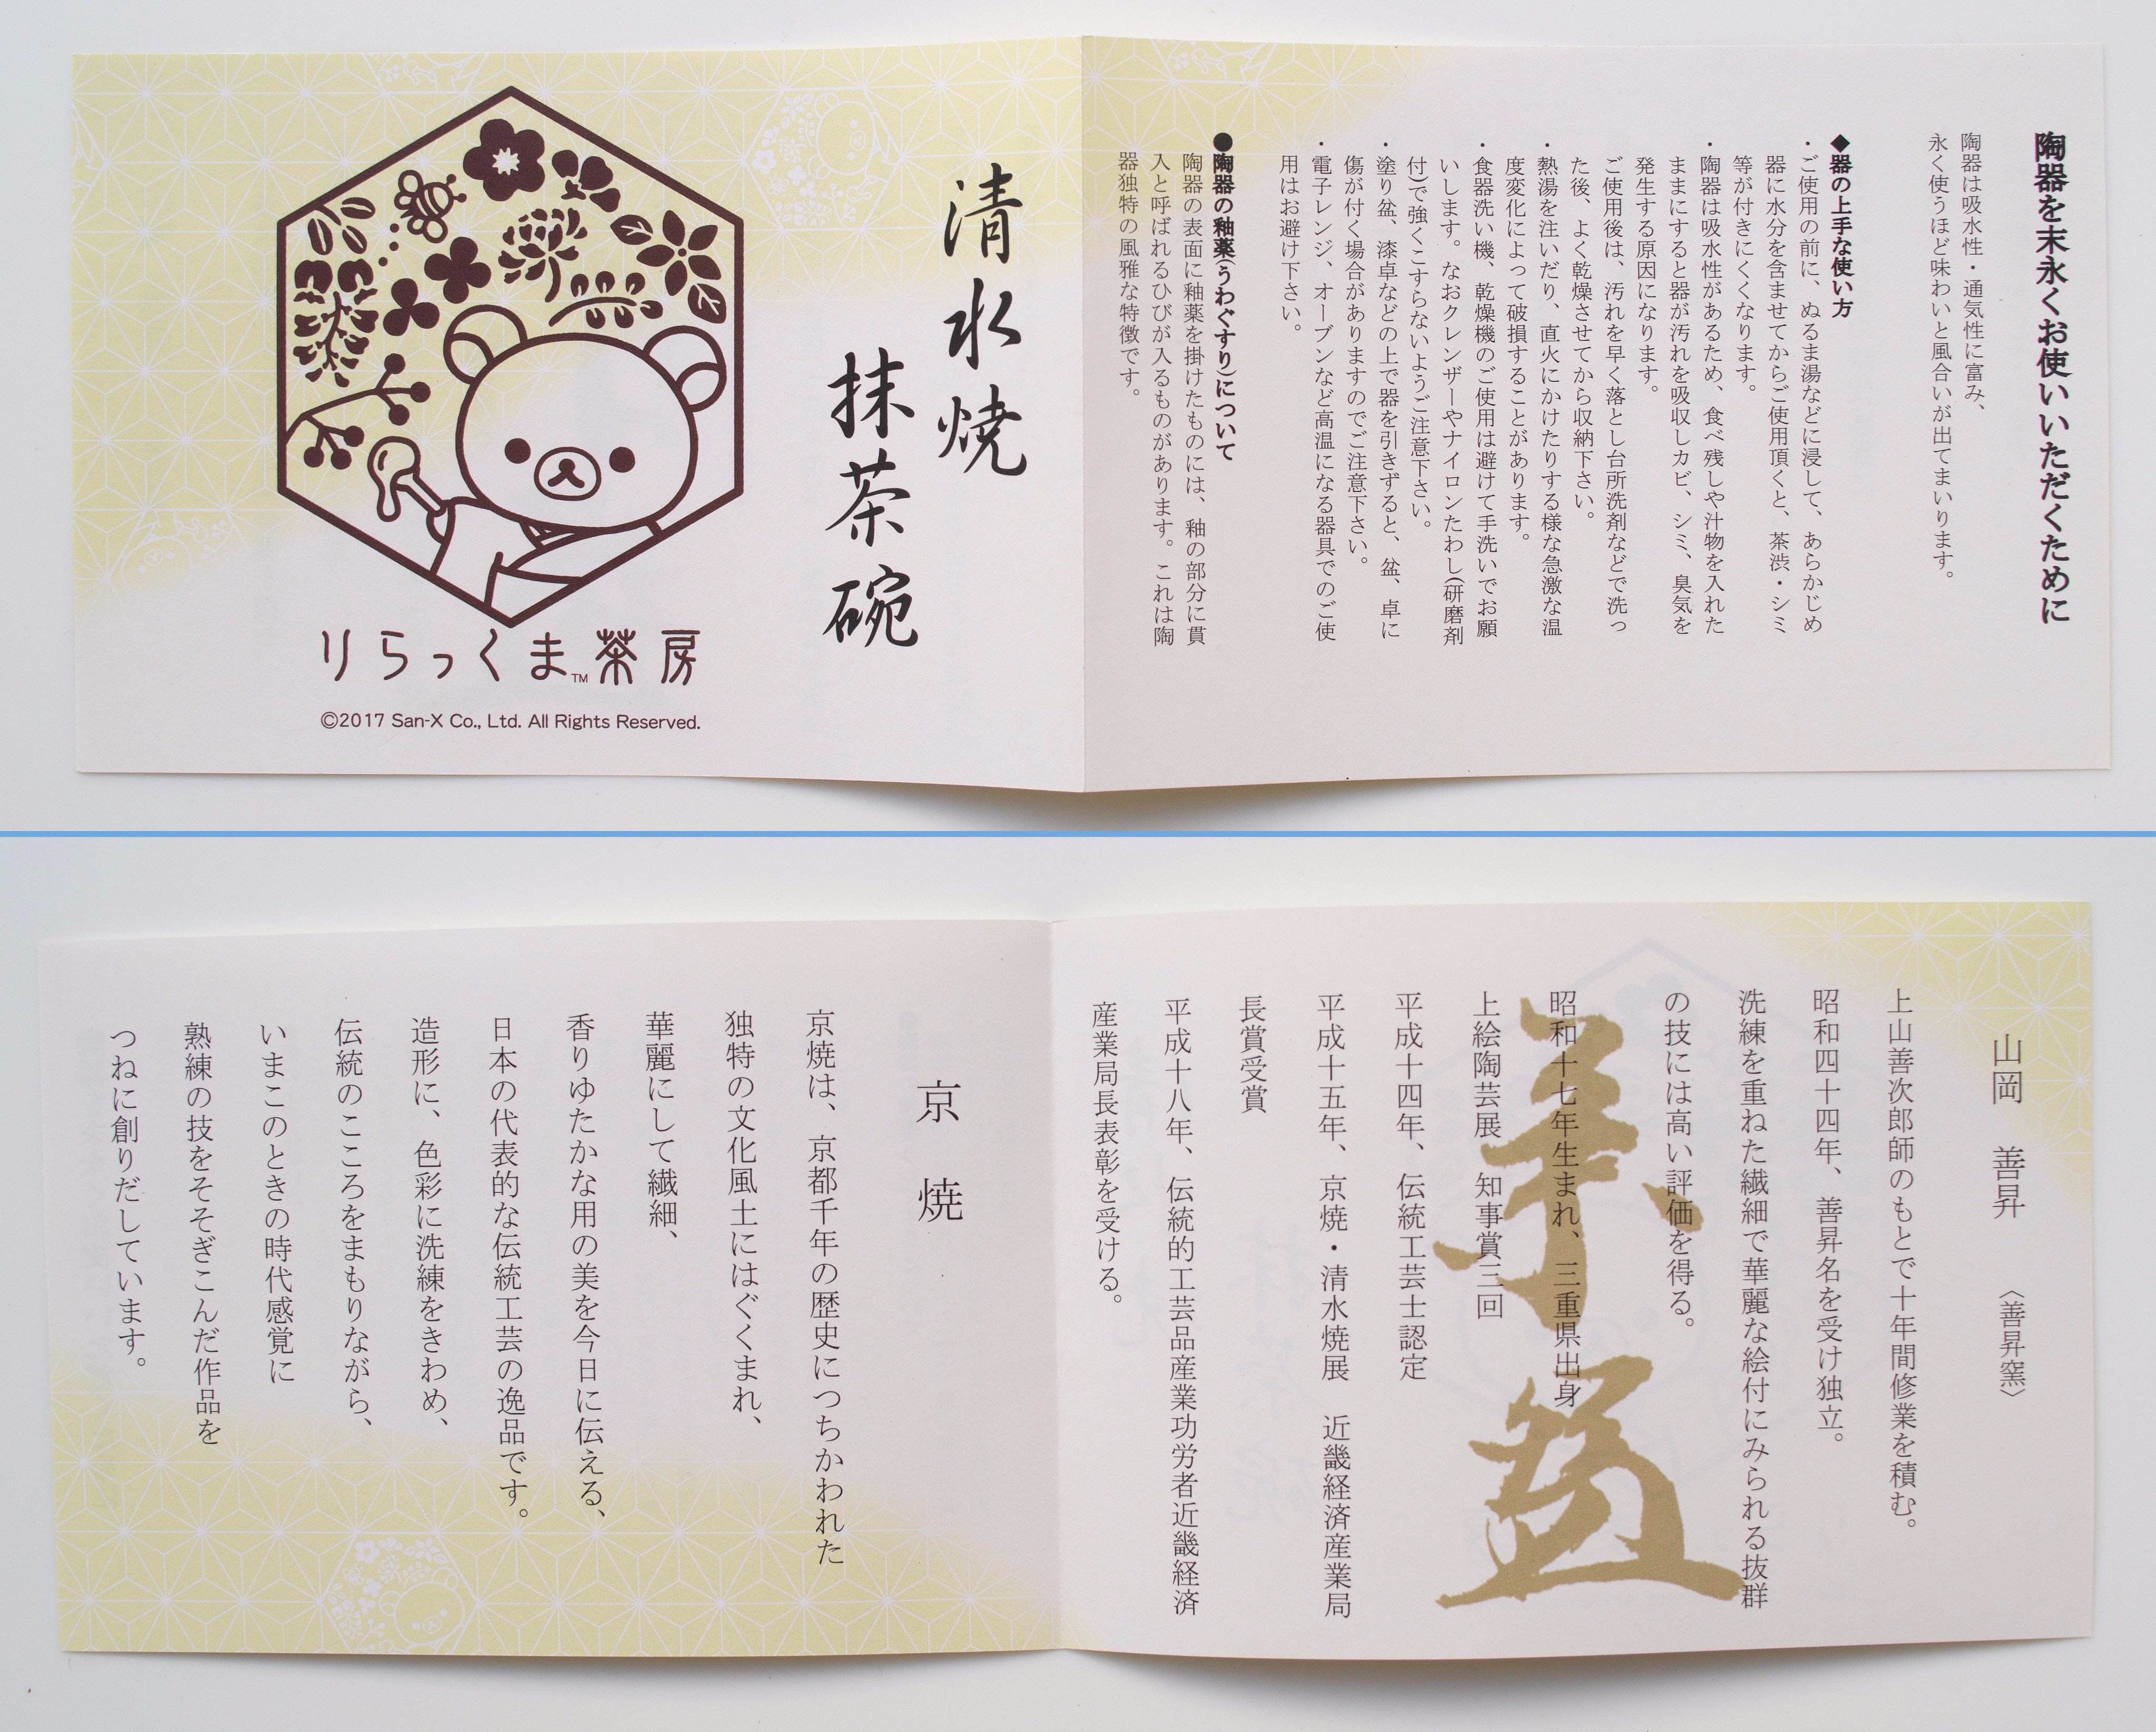 清水焼
抹茶碗
りらっくま™茶房
©2017 San-X Co., Ltd. All Rights Reserved.
陶器を末永くお使いいただくために
陶器は吸水性・通気性に富み、
永く使うほど味わいと風合いが出てまいります。
◆器の上手な使い方
・ご使用の前に、ぬるま湯などに浸して、あらかじめ
器に水分を含ませてからご使用頂くと、茶渋・シミ
等が付きにくくなります。
・陶器は吸水性があるため、食べ残しや汁物を入れた
ままにすると器が汚れを吸収しカビ、シミ、臭気を
発生する原因になります。
ご使用後は、汚れを早く落とし台所洗剤などで洗っ
た後、よく乾燥させてから収納下さい。
・熱湯を注いだり、直火にかけたりする様な急激な温
度変化によって破損することがあります。
・食器洗い機、乾燥機のご使用は避けて手洗いでお願
いします。なおクレンザーやナイロンたわし(研磨剤
付)で強くこすらないようご注意下さい。
・塗り盆、漆卓などの上で器を引きずると、盆、卓に
傷が付く場合がありますのでご注意下さい。
・電子レンジ、オーブンなど高温になる器具でのご使
用はお避け下さい。
●陶器の釉薬(うわぐすり)について
陶器の表面に釉薬を掛けたものには、釉の部分に貫
入と呼ばれるひびが入るものがあります。これは陶
器独特の風雅な特徴です。
山岡 善昇 〈善昇窯〉
上山善次郎師のもとで十年間修業を積む。
昭和四十四年、善昇名を受け独立。
洗練を重ねた繊細で華麗な絵付にみられる抜群
の技には高い評価を得る。
昭和十七年生まれ、三重県出身
上絵陶芸展 知事賞三回
平成十四年、伝統工芸士認定
平成十五年、京焼・清水焼展 近畿経済産業局
長賞受賞
平成十八年、伝統的工芸品産業功労者近畿経済
産業局長表彰を受ける。
京焼
京焼は、京都千年の歴史につちかわれた
独特の文化風土にはぐくまれ、
華麗にして繊細、
香りゆたかな用の美を今日に伝える、
日本の代表的な伝統工芸の逸品です。
造形に、色彩に洗練をきわめ、
伝統のこころをまもりながら、
いまこのときの時代感覚に
熟練の技をそそぎこんだ作品を
つねに創りだしています。